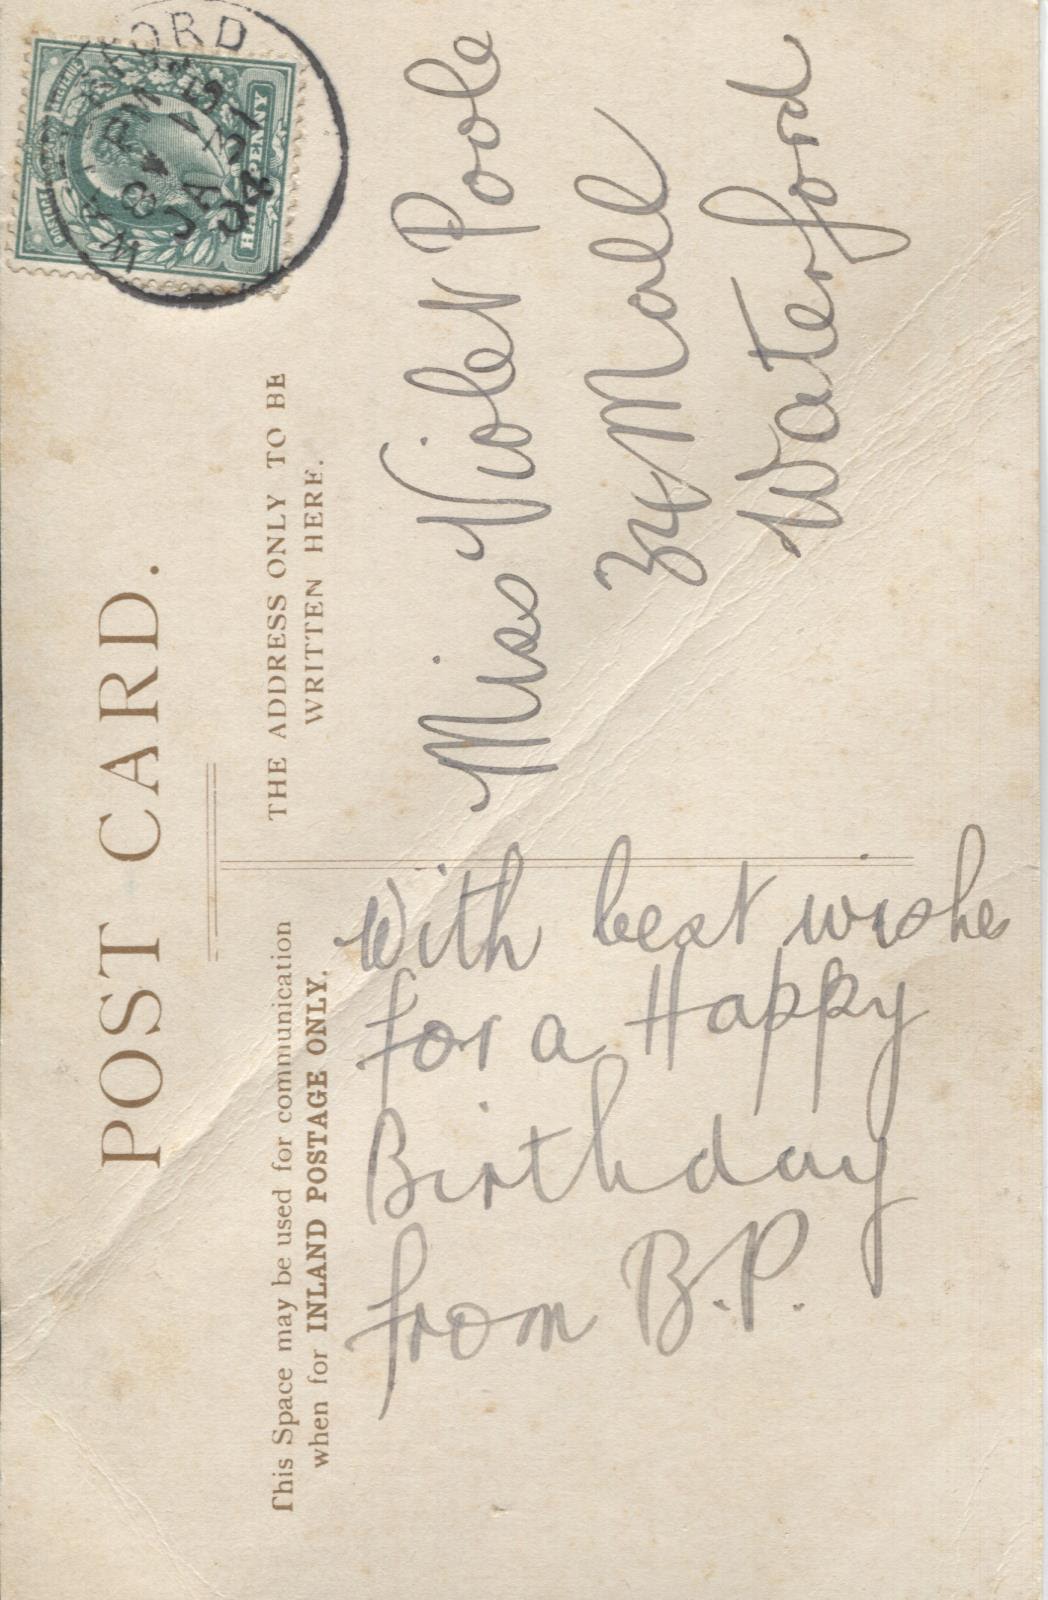 POST CARD.
This Space may be used for communication
when for INLAND POSTAGE ONLY.
THE ADDRESS ONLY TO BE
WRITTEN HERE.
With best wishes
for a Happy
Birthday
from B.P.
Miss Violet Poole
34 Mall
Waterford
WATERFORD
8 15 PM
JA 31
04
POSTAGE
HALFPENNY